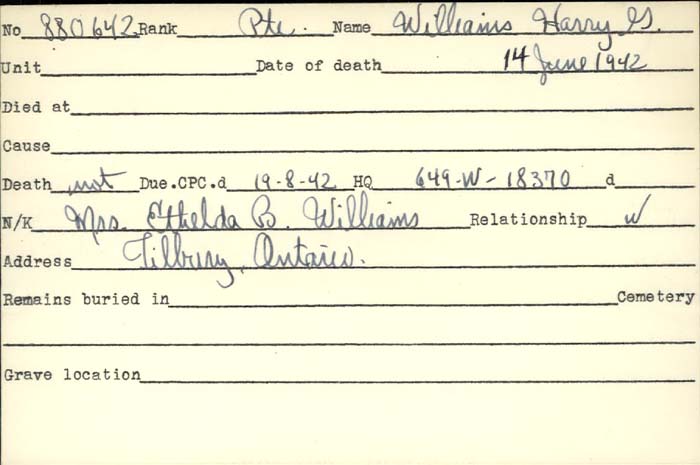 No 880642 Rank Pte. Name Williams Harry G.
Unit Date of death 14 June 1942
Died at
Cause
Death not Due.CPC.d 19-8-42 HQ 649-W-18370 d
N/K Mrs. Ethelda B. Williams Relationship W
Address Tilbury, Ontario.
Remains buried in Cemetery
Grave location